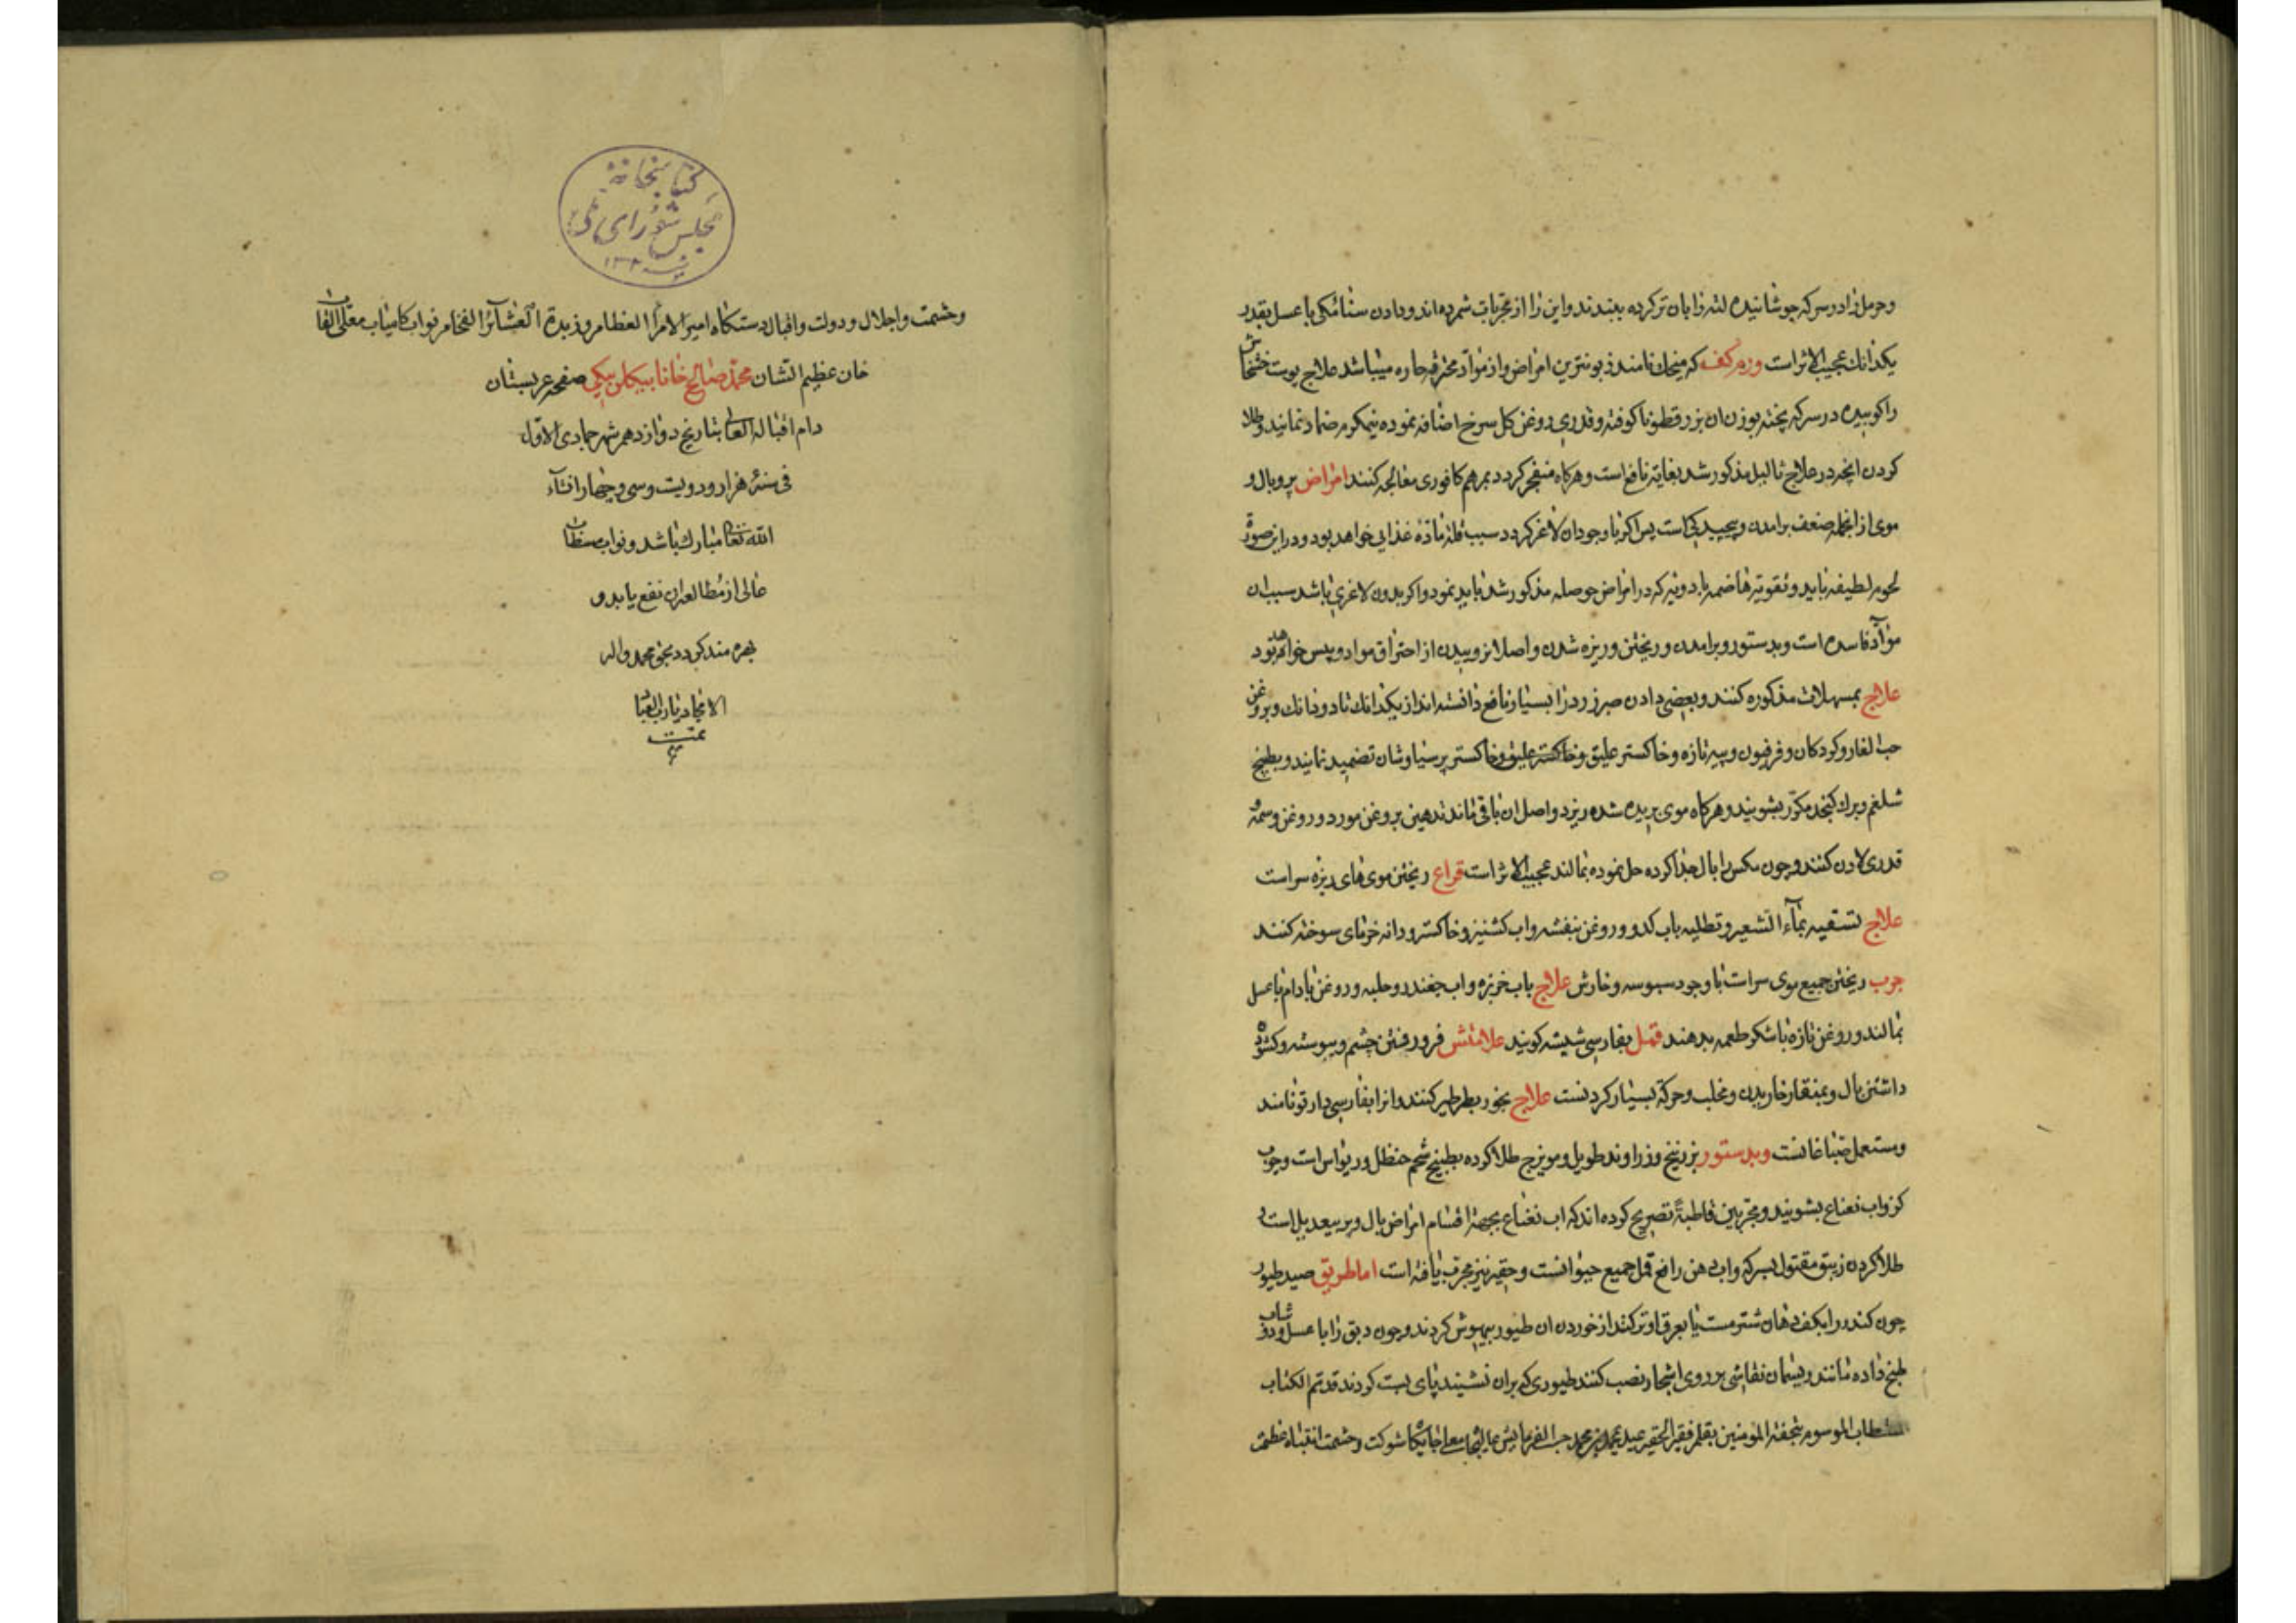 وحرمل را در سرکه جوشانیده لته را بان تر کرده ببندند و این را از مجربات شمرده‌اند و دادن سنائمکی با عسل بقدر
یکدانك عجیب الاثر است ورم کف که میخك نامند زبونترین امراض و از موادّ محترقه حاره میباشد علاج پوست خشخاش
را کوبیده در سرکه پخته بوزن ان بزرقطونا کوفته و قدری روغن کل سرخ اضافه نموده نیمکرم ضماد نمایند و طلا
کردن انچه در علاج ثالیل مذکور شد بغایة نافع است و هرکاه منفجر کردد بمرهم کافوری معالجه کنند امراض پر و بال و
موی از انجمله ضعف برامدن و پیچیدکی است پس اکر با وجود ان لاغر کردد سبب قلة مادّه غذایی خواهد بود و در این صورة
لحوم لطیفه باید و تقویة هاضمه بادویه که در امراض حوصله مذکور شد باید نمود و اکر بدون لاغری باشد سبب ان
موادّ فاسده است و بدستور و برامدن و ریختن و ریزه شدن و اصلا نروییدن از احتراق مواد و یبس خواهد بود
علاج بمسهلات مذکوره کنند و بعضی دادن صبر زرد را بسیار نافع دانسته‌اند از یکدانك تا دو دانك و بروغن
حب الغار و کردکان و فرفیون و پیه تازه و خاکستر علیق و خاکستر علیق و خاکستر پرسیاوشان تضمید نمایند و بطبیخ
شلغم و برك کنجد مکرّر بشویند و هرکاه موی بریده شده ریزد و اصل ان باقی ماند تدهین بروغن مورد و روغن وسمه و
قدری لادن کنند و چون مکس را بال جدا کرده حل نموده بمالند عجیب الاثر است قراع ریختن موی‌های ریزه سر است
علاج تسقیه بماء الشعیر و تطلیه باب کدو و روغن بنفشه و اب کشنیز و خاکستر و دانه خرمای سوخته کنند
جرب ریختن جمیع موی سر است با وجود سبوسه و خارش علاج باب خربزه و اب چغندر و حلبه و روغن بادام با عسل
بمالند و روغن تازه با شکر طعمه بدهند قمل بفارسی شپشه کویند علامتش فرو رفتن چشم و پیوسته و کشوده
داشتن بال و بمنقار خاریدن و مخلب و حرکة بسیار کردنست علاج بخور بطرطیر کنند و انرا بفارسی دارتو نامند
و مستعمل صباغانست و بدستور بزرنیخ و زراوند طویل و مویزج طلا کرده بطبیخ شحم حنظل و ریواس است و چوب
کز و اب نعناع بشویند و مجرّبین قاطبةً تصریح کرده‌اند که اب نعناع بجهة اقسام امراض بال و پر بیعدیل است و
طلا کردن زیبق مقتول بسرکه و اب دهن رافع قمل جمیع حیوانست و حقیر نیز مجرّب یافته است اما طریق صید طیور
چون کندر را بکف دهان شتر مست یا بعرق او تر کنند از خوردن ان طیور بیهوش کردند و چون دبق را با عسل و دوشاب
طبخ داده مانند ریسمان نقاشی بر روی اشجار نصب کنند طیوری که بران نشیند پای بست کردند قد تم الکتاب
المستطاب الموسوم بتحفة المومنین بقلم فقیر الحقیر حسب الفرمایش عالیجاه معلی جایکاه شوکت و حشمت انتباه عظمت
کتابخانهٔ
مجلس شورای ملی
وحشمت و اجلال و دولت و اقبال دستکاه امیر الامراء العظام و زبدة العشائر الفخام نواب کامیاب معلّی القاب
خان عظیم الشان محمّد صالح خانا بیکلر بیکی صفحه عربستان
دام اقباله العالی بتاریخ دوازدهم شهر جمادی الاول
فی سنهٔ هزار و دویت و سی و چهار انشآء
الله تعالی مبارك باشد و نواب مستطاب
عالی از مطالعه ان نفع یابد و
بهره مند کردد بحق محمد و اله
الامجاد یا رب العباد
تمت